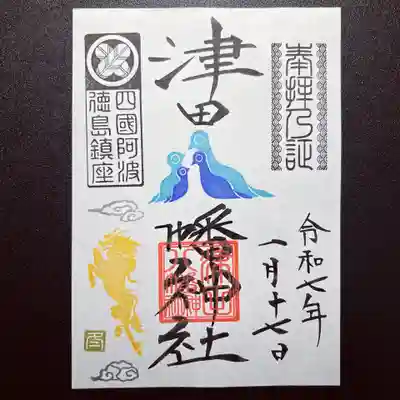 奉拝乃証
令和七年
一月十七日
津田
八幡神社
四國阿波
徳島鎮座